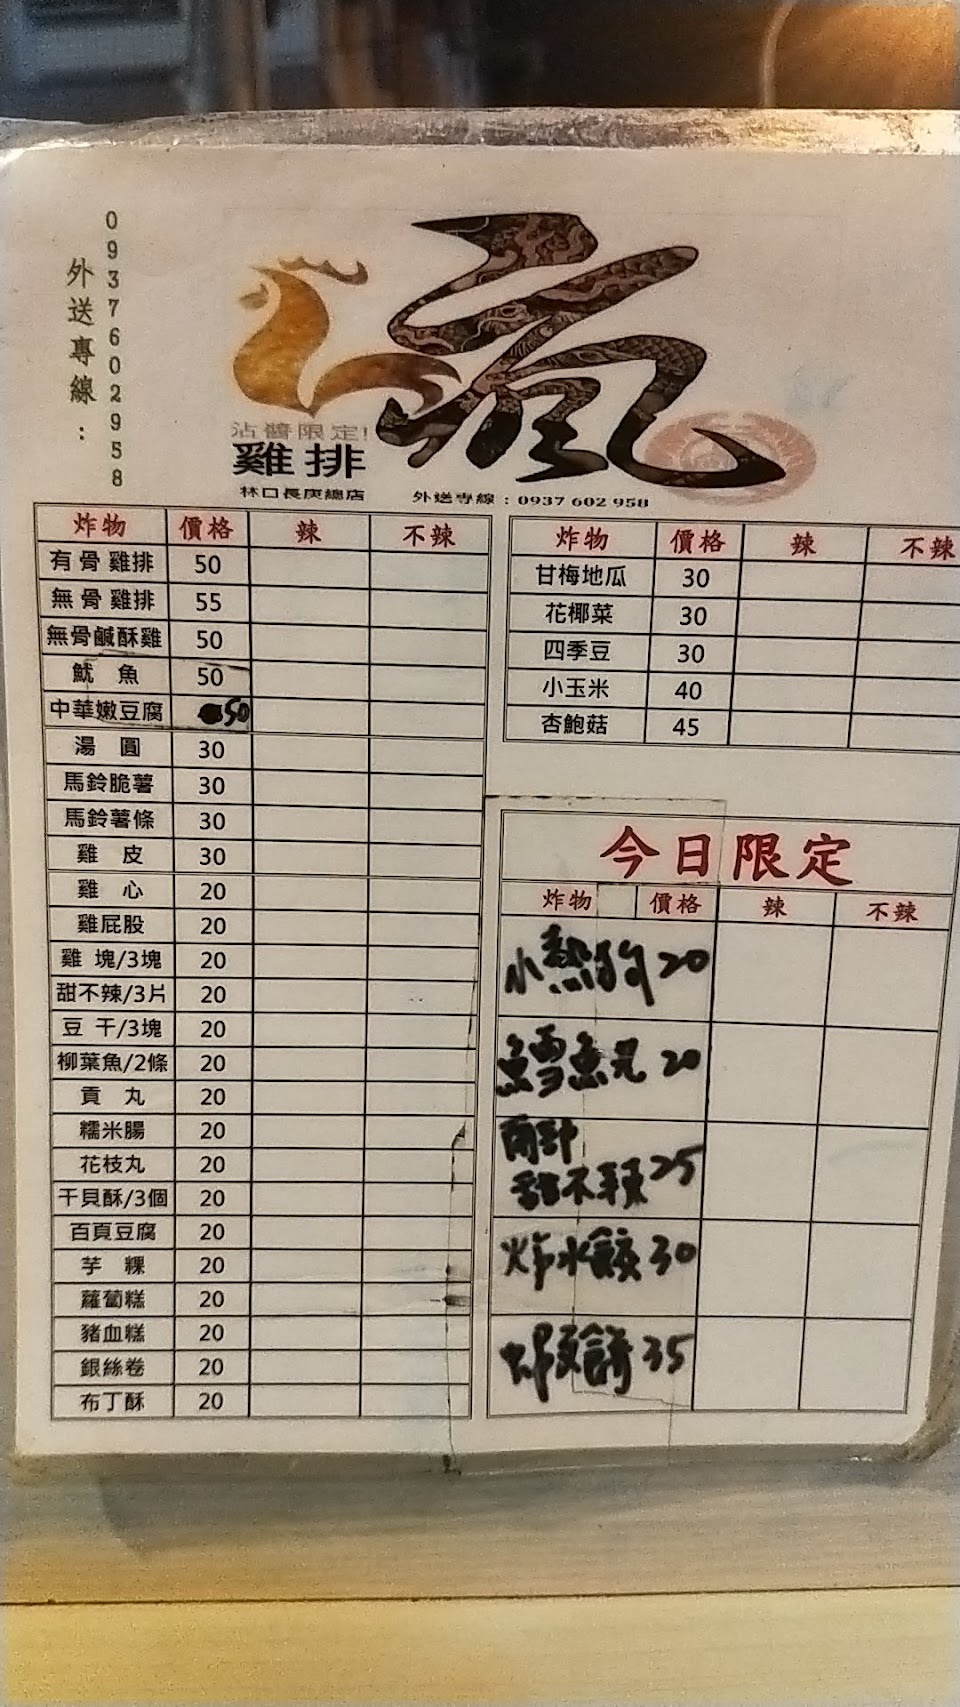 0937602958
外送專線：
瘋
沾醬限定!
雞排
林口長庚總店 外送専線：0937 602 958
炸物 價格 辣 不辣
有骨雞排 50
無骨雞排 55
無骨鹹酥雞 50
魷魚 50
中華嫩豆腐 50
湯圓 30
馬鈴脆薯 30
馬鈴薯條 30
雞皮 30
雞心 20
雞屁股 20
雞塊/3塊 20
甜不辣/3片 20
豆干/3塊 20
柳葉魚/2條 20
貢丸 20
糯米腸 20
花枝丸 20
干貝酥/3個 20
百頁豆腐 20
芋粿 20
蘿蔔糕 20
豬血糕 20
銀絲卷 20
布丁酥 20
炸物 價格 辣 不辣
甘梅地瓜 30
花椰菜 30
四季豆 30
小玉米 40
杏鮑菇 45
今日限定
炸物 價格 辣 不辣
小熱狗 20
鱈魚丸 20
南部
甜不辣 25
炸水餃 30
蝦餅 35